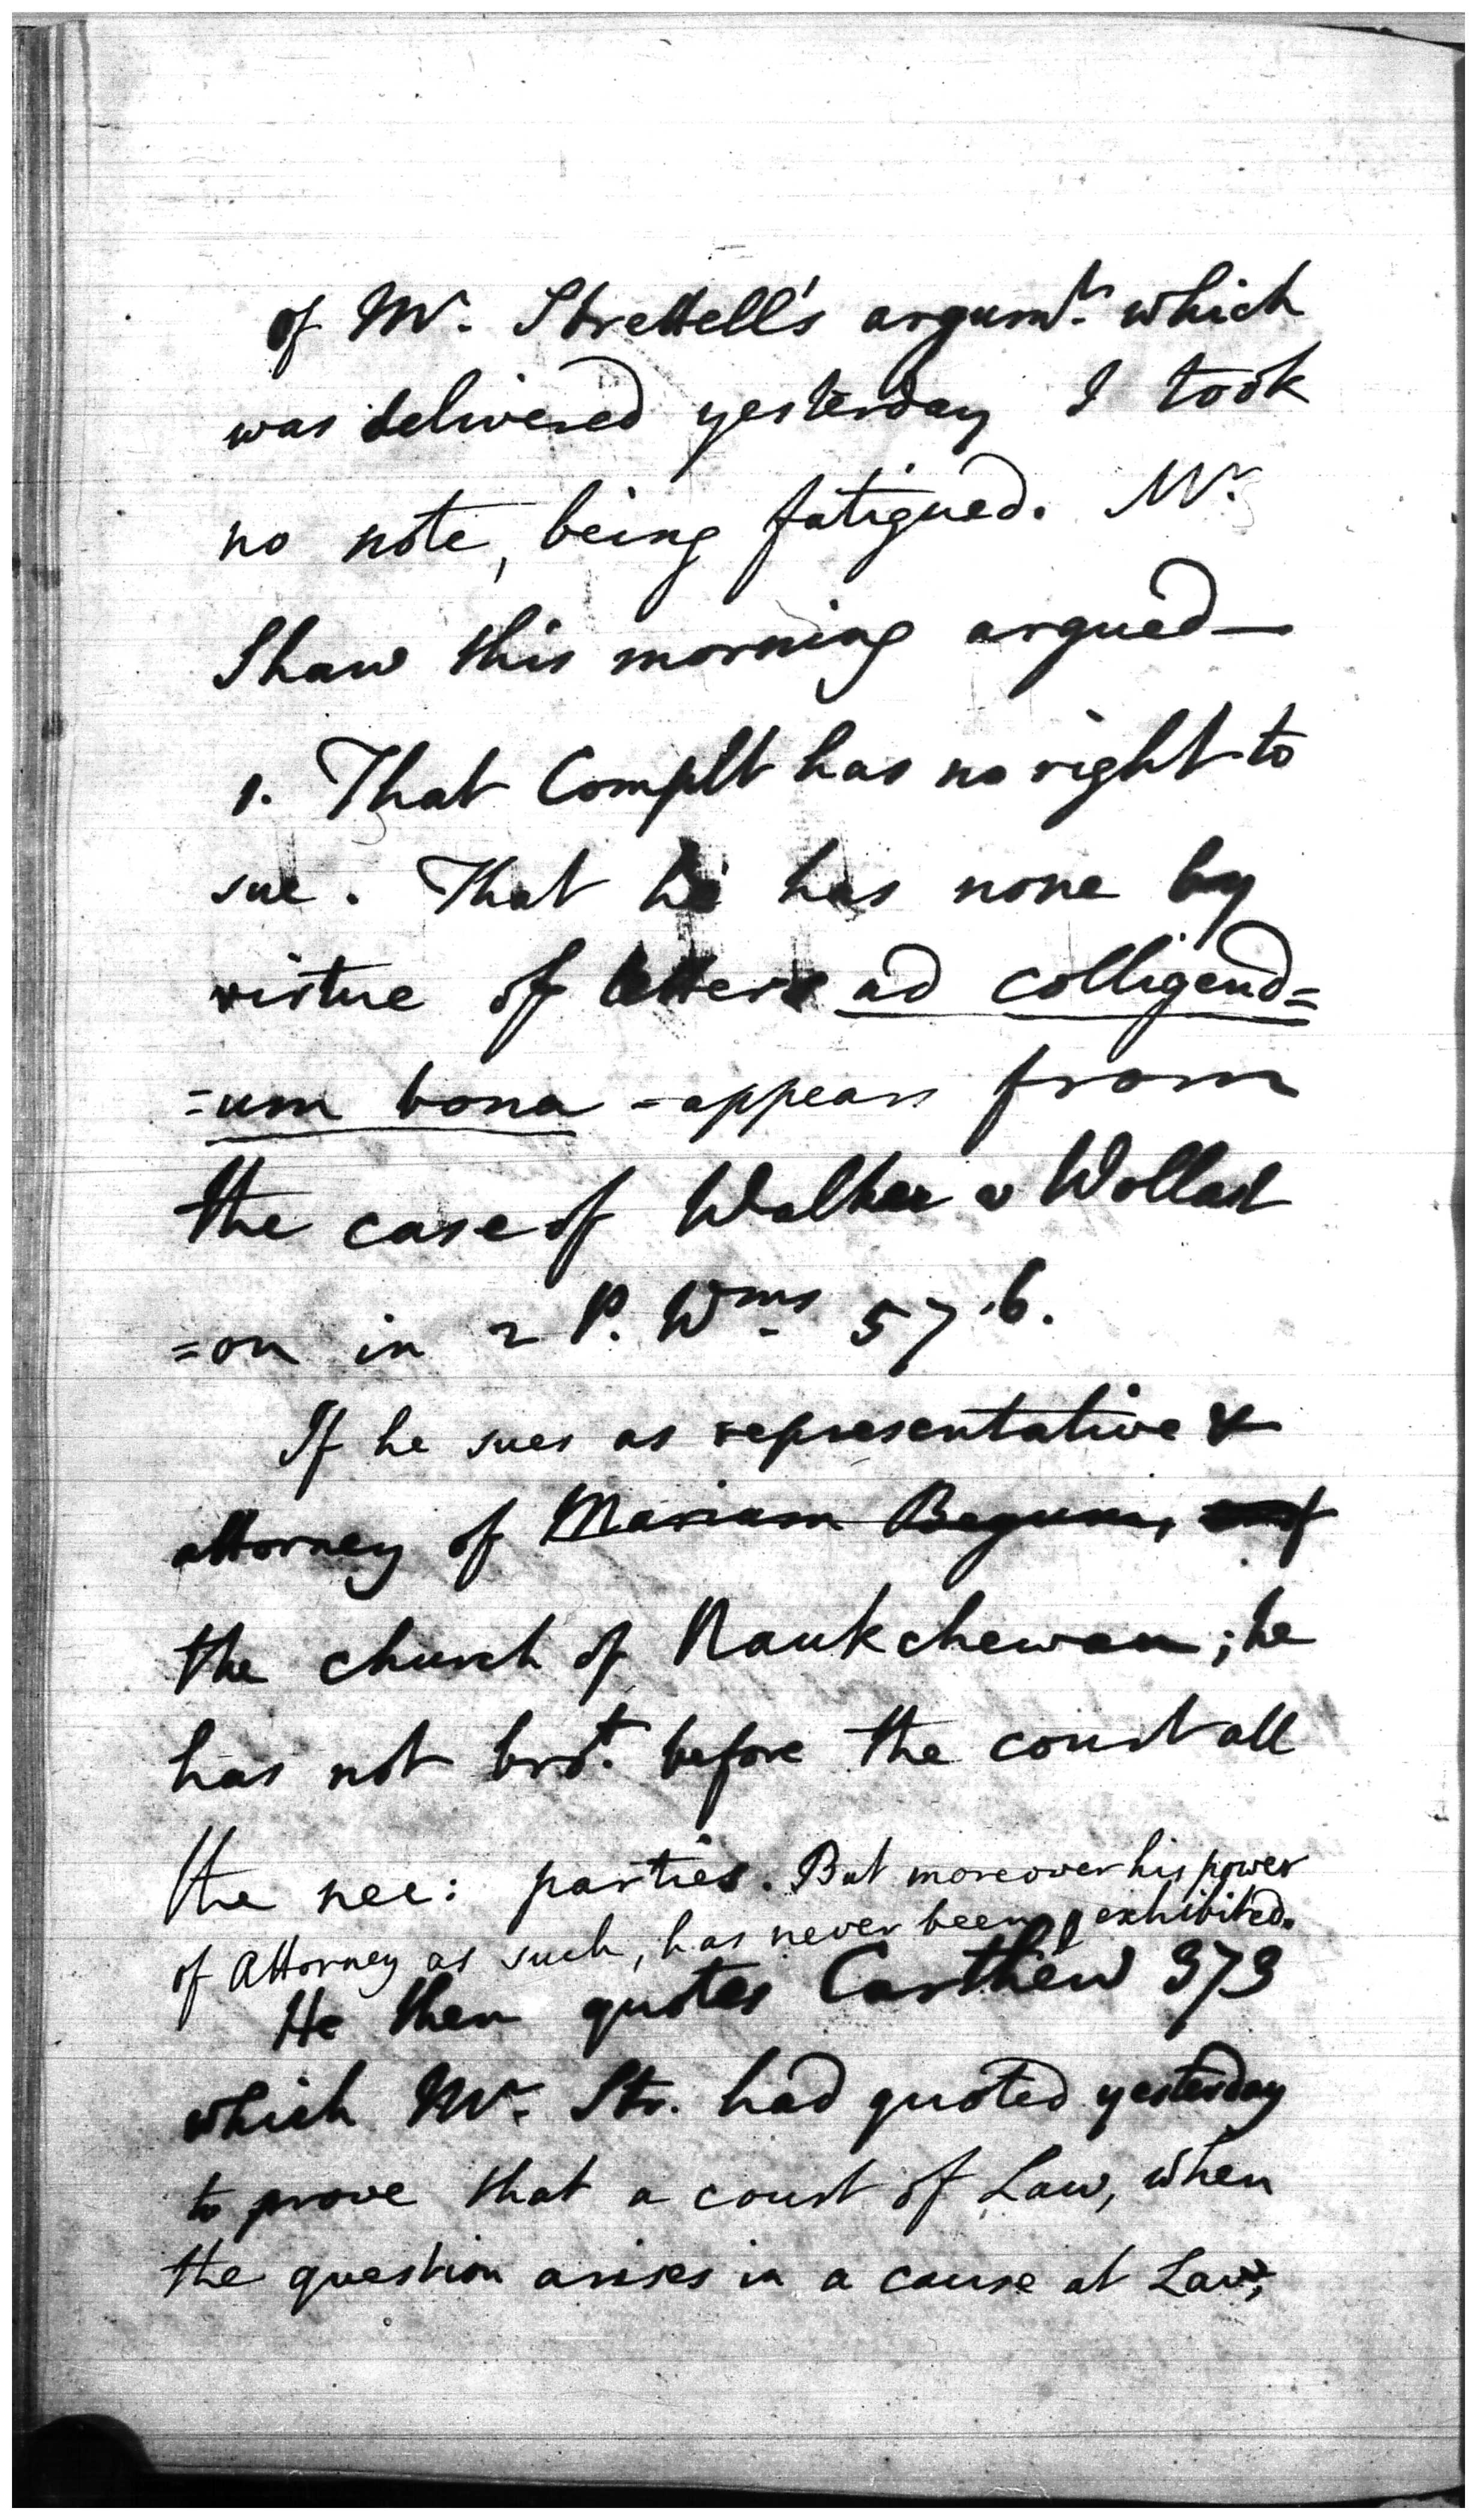 of Mr. Strettell's argumts. which
was delivered yesterday I took
no note, being fatigued. Mr.
Shaw this morning argued—
1. That Complt has no right to
sue. That he has none by
virtue of letters ad colligend=
=um bona - appears from
the case of Walker v Wollast
=on in 2 P. Wms 576.
If he sues as representative &
attorney of Mariam Begum,
the church of Naukchewan; he
has not brot. before the court all
the nec: parties. But moreover his power
of Attorney as such, has never been exhibited.
He then quotes Carthew 373
which Mr. Str. had quoted yesterday
to prove that a court of Law, when
the question arises in a cause at Law,